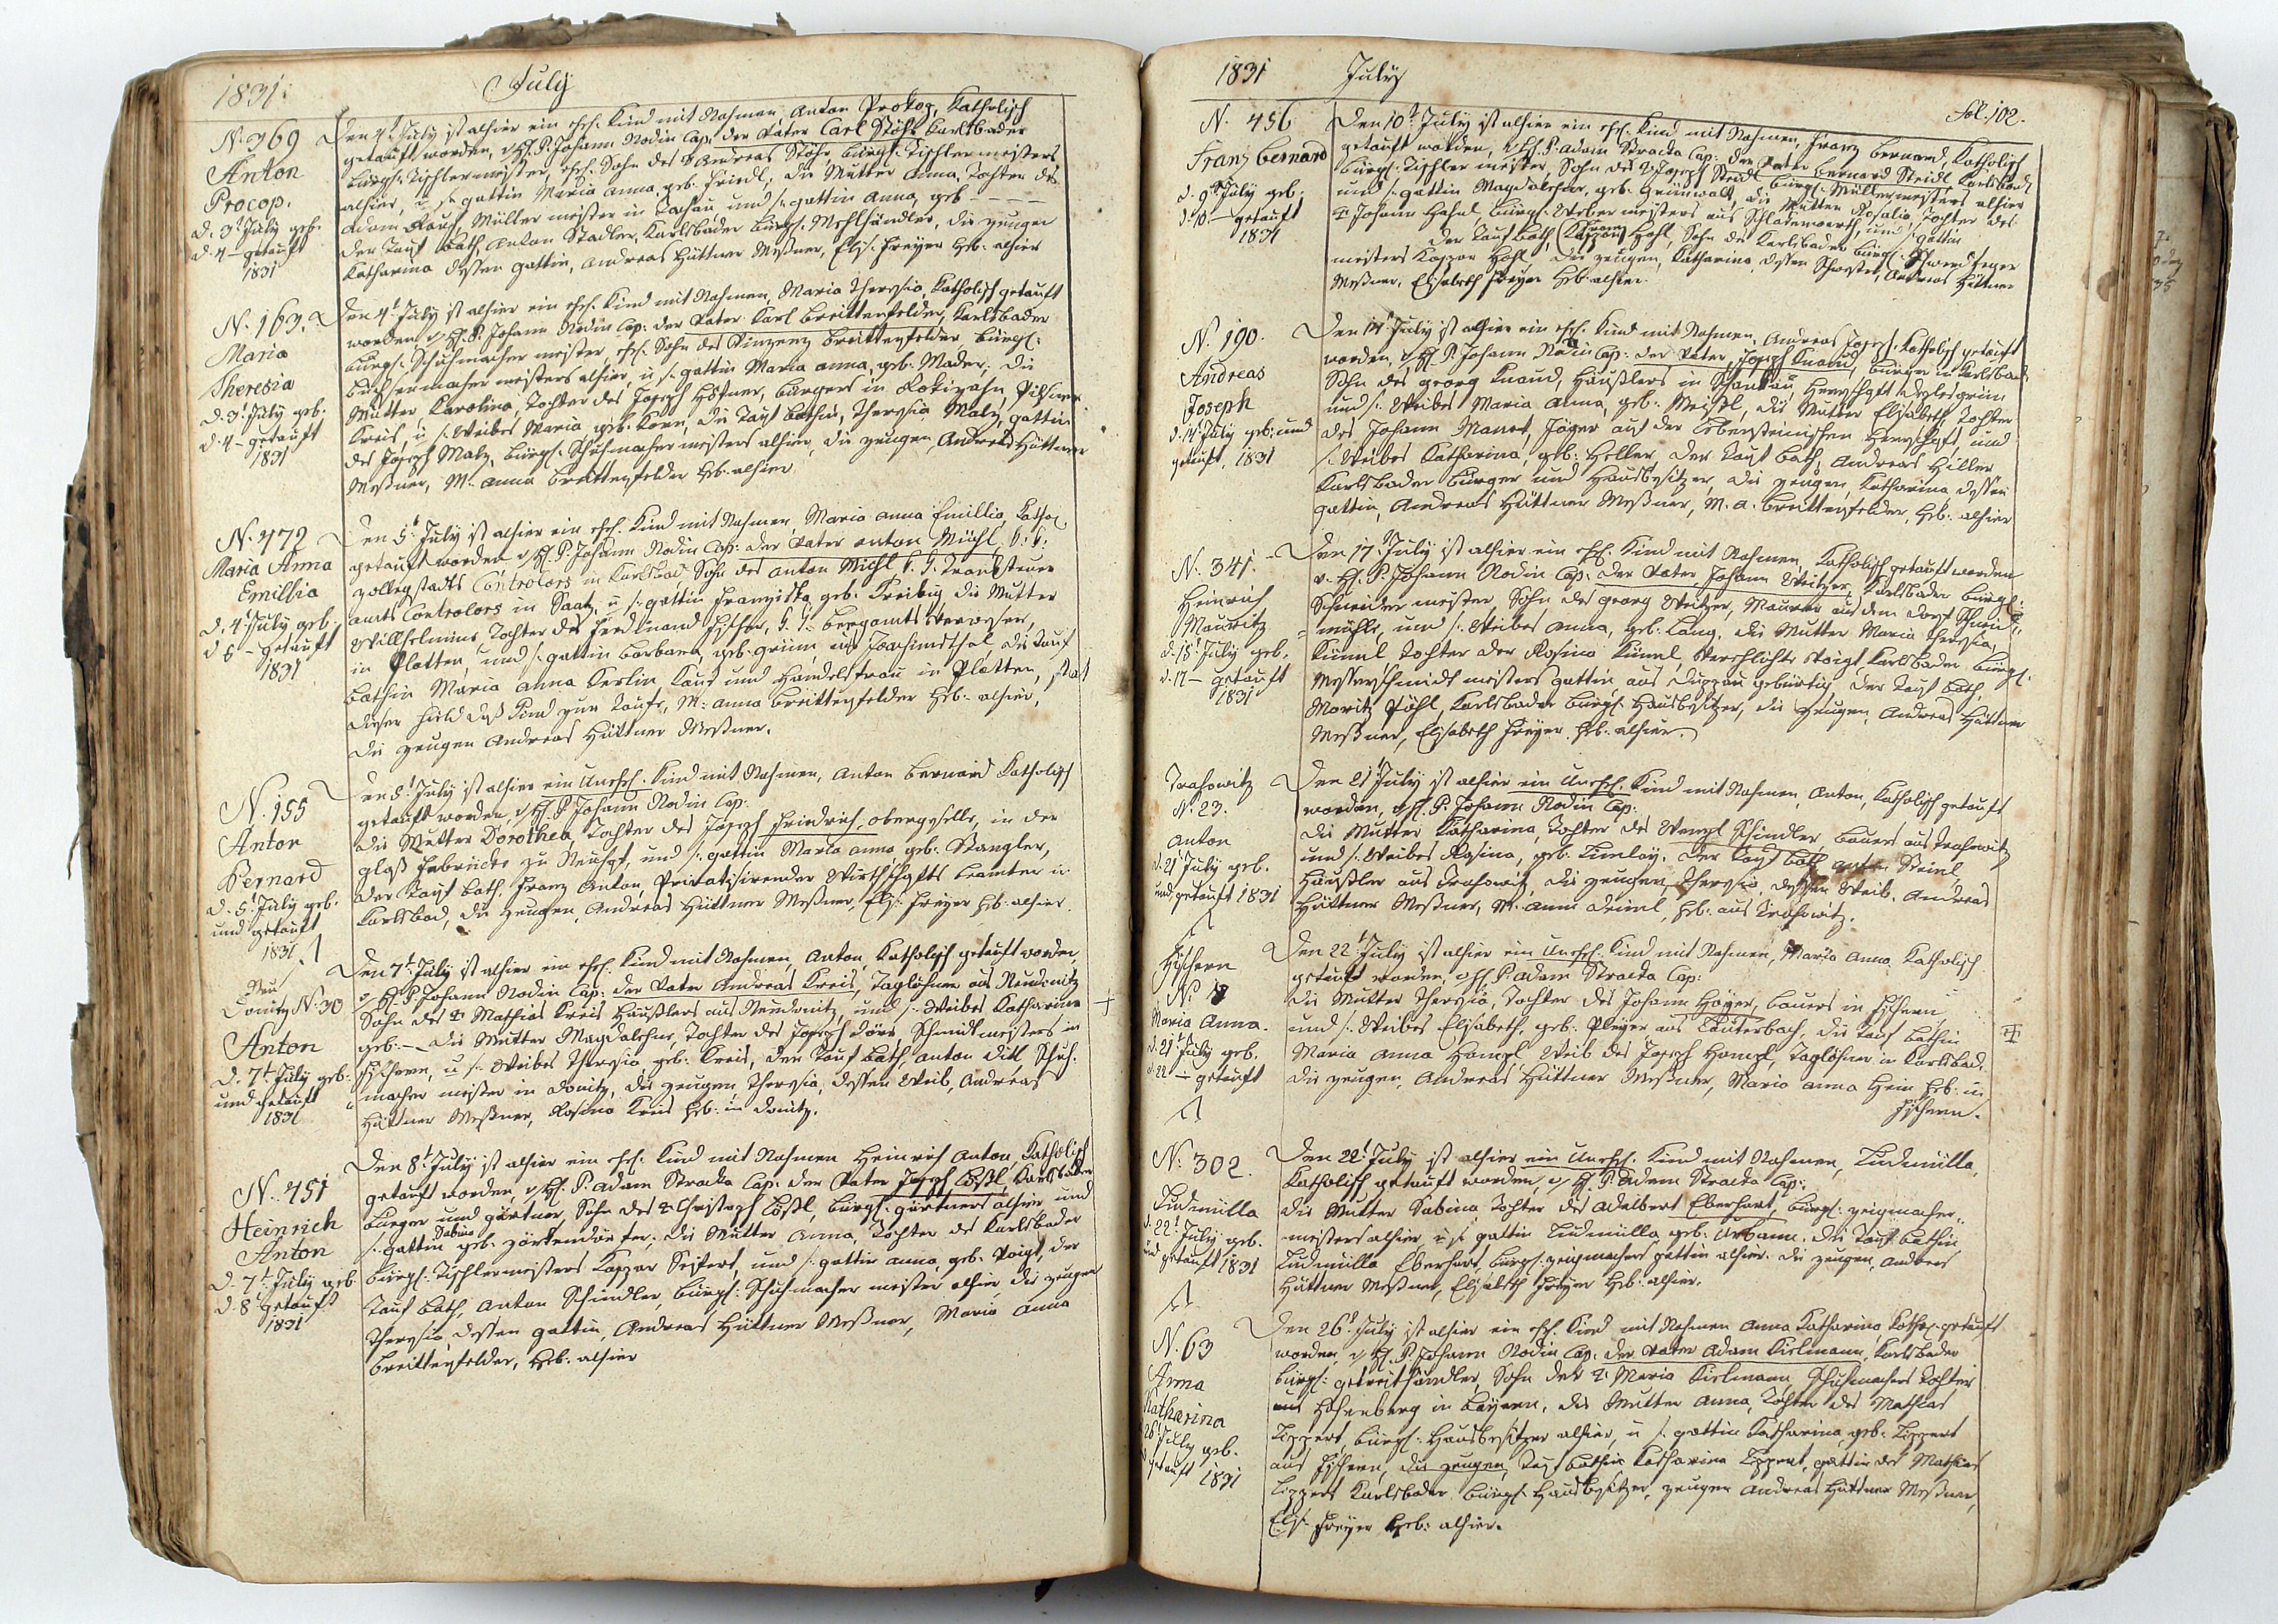 1831. July
N. 769
Anton
Procop.
d. 3t July geb.
d. 4 – getauft
1831
Den 4t July ist alhier ein ehel. Kind mit Nahmen, Anton Prokop, Katholisch
getauft worden, v. H. P. Johann Nodin Cap: der Vater Carl Stöhr Karlsbader
bürgl. Tischlermeister, ehel. Sohn des Andreas Stöhr, bürgl. Tischlermeisters
alhier, u. s. gattin Maria Anna, geb. Friedl; die Mutter Anna, Tochter des
Adam, Müller meister in Dachau und s. gattin Anna, geb – – – –
der Tauf Path Anton Stadler, Karlsbader bürgl. Mehlhändler, die zeugen
Katharina dessen gattin, Andreas Hüttner Meßner, Elis. Freyer Heb. alhier
N. 163.
Maria
Theresia
d. 3t July geb.
d. 4 – getauft
1831
Den 4t July ist alhier ein ehel. Kind mit Nahmen, Maria Theresia, Katholisch getauft
worden v. H. P. Johann Nodin Cap: der Vater Karl Breittenfelder, Karlsbader
bürgl. Schuhmacher meister, ehel. Sohn des Vinzenz Breittenfelder bürgl.
Büchsenmacher meisters alhier, u. s. gattin Maria Anna, geb. Mader; die
Mutter Karolina, Tochter des Joseph Höpner, bürgers in Rokizahn, Pilsner
Kreis, u. s. Weibes Maria geb. Korn, die Tauf Bathin, Theresia Maly, gattin
des Joseph Maly, bürgl. Schuhmacher meisters alhier, die zeugen, Andreas Hüttner
Meßner, M. Anna Breittenfelder Heb. alhier.
N. 472
Maria Anna
Emillia
d. 4t July geb.
d. 5 – getauft
1831
Den 5t July ist alhier ein ehel. Kind mit Nahmen, Maria Anna Emillia, Kathol.
getauft worden v. H. P. Johann Nodin Cap: der Vater Anton Michl k. k.
Zollegstadts Controlors in Karlsbad Sohn des Anton Michl k. k. Tranksteuer
amts Controlors in Saatz, u. s. gattin Franziska geb. Kreibig die Mutter
Willhelmine Tochter des Ferdinand Fischer, k. k. Bergamts Verweser,
in Platten, und s. gattin Barbara, geb. Grünn aus Joachimsthal, die Tauf
Bathin Maria Anna Kerlin Kauf und Handelsfrau in Platten, statt
dieser hield daß Kind zur Taufe, M: Anna Breittenfelder Heb. alhier,
die zeugen Andreas Hüttner Meßner.
N. 155
Anton
Bernard
d. 5t July geb.
und getauft
1831.
Den 5t July ist alhier ein Unehel. Kind mit Nahmen, Anton Bernard Katholisch
getauft worden, v. H. P. Johann Nodin Cap:
die Mutter Dorothea, Tochter des Joseph Friedrich, obergeselle, in der
glaß Fabricke zu Neuhof, und s. gattin Maria Anna geb. Stangler,
der Tauf Bath. Franz Anton, Privatisirender Wirthschafts Beamter in
Karlsbad, die zeugen, Andreas Hüttner Meßner, Elis. Freyer Heb. alhier.
Neu
Donitz N. 30
Anton
d. 7t July geb.
und getauft
1831
Den 7t July ist alhier ein ehel. Kind mit Nahmen, Anton, Katholisch getauft worden
v. H. P. Johann Nodin Cap: der Vater Andreas Kreis, Taglöhner aus Neudonitz
Sohn des Mathias Kreis Häußlers aus Neudonitz, und s. Weibes Katharina
geb. – die Mutter Magdalehne, Tochter des Joseph Dörr, Schmidt meisters in
Fischern, u. s. Weibes Theresia geb. Kreis, der Tauf Bath, Anton Dill Schuh-
macher meister in Donitz, die zeugen, Theresia, dessen Weib, Andreas
Hüttner Meßner, Rosina Kreis Heb. in Donitz.
N. 451
Heinrich
Anton
d. 7t July geb
d. 8t getauft
1831
Den 8t July ist alhier ein ehel. Kind mit Nahmen Heinrich Anton, Katholisch
getauft worden, v. H. P. Adam Stracka Cap: der Vater Joseph Lößl, Karlsbader
bürger und gärtner, Sohn des Christoph Lößl, bürgl. gärtners alhier und
s. gattin Sabina geb. Zörkendörfer; die Mutter Anna, Tochter des Karlsbader
bürgl. Tischlermeisters Kaspar Seifert, und s. gattin Anna, geb. Voigt, der
Tauf Bath, Anton Schindler, bürgl. Schuhmacher meister alhier, die zeugen
Theresia, dessen gattin, Andreas Hüttner Meßner, Maria Anna
Breittenfelder, Heb. alhier
1831 July
Fol. 102.
N. 456
Franz Bernard
d. 9t July geb.
d. 10. – getauft
1831
Den 10t July ist alhier ein ehel. Kind mit Nahmen, Franz Bernard, Katholisch
getauft worden, v. H. P. Adam Stracka Cap: der Vater Bernard Steidl, Karlsbad
bürgl. Tischler meister, Sohn des Joseph Steidl bürgl. Müllermeisters alhier
und s. gattin Magdalehna, geb. Grünwalt, die Mutter Rosalia, Tochter des
Johann Hahnl, bürgl. Webermeisters aus Schlackenwerth, und s. gattin
der Tauf Bath, Franz Hohl, Sohn des Karlsbader bürgl. Schwerdfeger
meisters Kaspar Hohl, die zeugen, Katharina, dessen Schwester, Andreas Hüttner
Meßner, Elisabeth Freyer Heb. alhier.
N. 190.
Andreas
Joseph
d. 14t July geb. und
getauft. 1831
Den 14t July ist alhier ein ehel. Kind mit Nahmen, Andreas Joseph, Katholisch getauft
worden, v. H. P. Johann Nodin Cap: der Vater, Joseph Knaud, bürger in Karlsbad
Sohn des Georg Knaud, Häußlers in Schankau, Herrschaft
und s. Weibes Maria Anna, geb. Meißl, die Mutter Elisabeth, Tochter
des Johann, Jäger auf der Liebensteinischen Herrschaft, und
s. Weibes Katharina, geb. Heller, der Tauf Bath, Andreas Hiller
Karlsbader bürger und Hausbesitzer, die zeugen, Katharina, dessen
gattin, Andreas Hüttner Meßner, M. A. Breittenfelder, Heb. alhier
N. 341.
Heinrich
Mauritz
d. 15t July geb.
d. 17 – getauft
1831
Den 17t July ist alhier ein ehel. Kind mit Nahmen, Katholisch getauft worden
v. H. P. Johann Nodin Cap: der Vater, Johann Weitzer, Karlsbader bürgl.
Schneider meister, Sohn des Georg Weitzer, Maurer aus dem Dorf Schneid-
mühle, und s. Weibes Anna, geb. Lang, die Mutter Maria Theresia,
Künnl Tochter der Rosina Künnl, verehlichte Voigt, Karlsbader bürgl.
Messerschmidt meisters gattin, aus Duppau gebürtig, der Tauf Bath,
Moritz Pöhl, Karlsbader bürgl. Hausbesitzer, die zeugen, Andreas Hüttner
Meßner, Elisabeth Freyer Heb. alhier.
Drahowitz
N. 23.
Anton
d. 21t July geb.
und getauft 1831
Den 21t July ist alhier ein Unehel. Kind mit Nahmen, Anton, Katholisch getauft
worden, v. H. P. Johann Nodin Cap:
die Mutter Katharina, Tochter des Wenzl Schindler, Bauers aus Drahowitz
und s. Weibes Rosina, geb. der Tauf Bath Anton
Häußler aus Drahowitz, die zeugen, Theresia, dessen Weib, Andreas
Hüttner Meßner, M. Anna, Heb. aus Drahowitz.
Fischern
N. 8
Maria Anna.
d. 21t July geb.
d. 22 – getauft
Den 22t July ist alhier ein Unehel. Kind mit Nahmen, Maria Anna, Katholisch
getauft worden, v. H. P. Adam Stracka Cap:
die Mutter Theresia, Tochter des Johann Hoyer, Bauers in Fischern,
und s. Weibes Elisabeth, geb. Pleyer aus Lauterbach, die Tauf Bathin
Maria Anna Hampl, Weib des Joseph Hampl, Taglöhner in Karlsbad,
die zeugen, Andreas Hüttner Meßner, Maria Anna Hein Heb. in
Fischern.
N: 302.
Ludmilla
d. 22t July geb.
und getauft 1831
Den 22t July ist alhier ein Unehel. Kind mit Nahmen, Ludmilla,
Katholisch getauft worden, v. H. P. Adam Stracka Cap:
die Mutter Sabina Tochter des Adalbert Eberhart, bürgl. zeugmacher-
meisters alhier, u. s. gattin Ludmilla, geb. Urbann. die Tauf Bathin
Ludmilla Eberhart, bürgl. zeugmachers gattin alhier. die zeugen, Andreas
Hüttner Meßner, Elisabeth Freyer Heb. alhier.
N. 63
Anna
Katharina
26t July geb.
getauft 1831
Den 26t July ist alhier ein ehel. Kind mit Nahmen Anna Katharina, Kathol. getauft
worden, v. H. P. Johann Nodin Cap: der Vater Adam Kielmann, Karlsbader
bürgl. getreithändler, Sohn der Maria Kielmann Schuhmachers Tochter
aus Hohenberg in Bayern, die Mutter Anna, Tochter des Mathias
Lippert, bürgl. Hausbesitzer alhier, u. s. gattin Katharina, geb. Lippert
aus Fischern, die zeugen, Tauf Bathin Katharina Lippert, gattin des Mathias
Lippert Karlsbader bürgl. Hausbesitzer, zeugen Andreas Hüttner Meßner,
Elis. Freyer Heb: alhier.